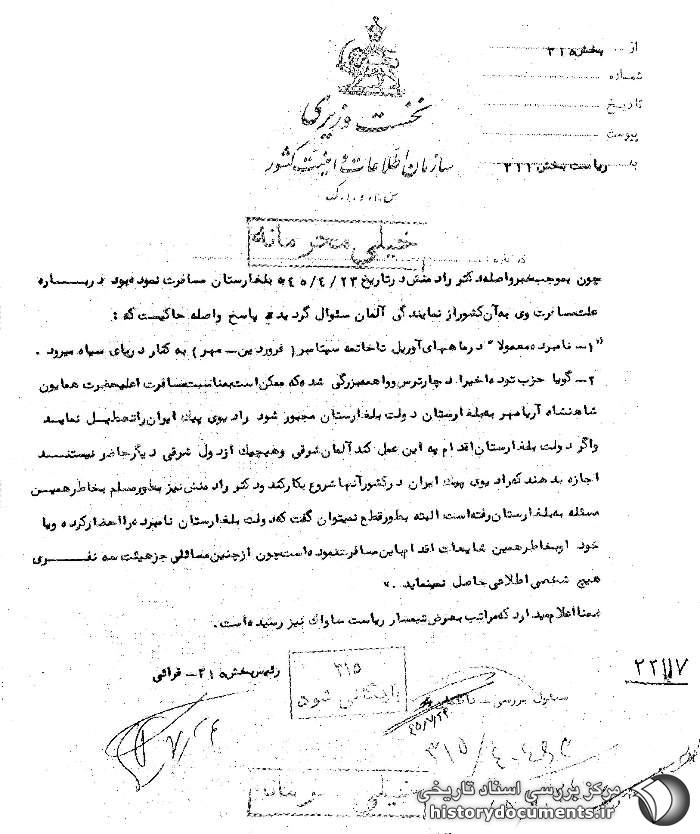 از بخش ۳۱۵
شماره
تاریخ
پیوست
به ریاست بخش ۳۱۱
نخست وزیری
سازمان اطلاعات و امنیت کشور
س.ا.و.ا.ک
خیلی محرمانه
درباره
چون بموجب خبر واصله دکتر رادمنش در تاریخ ۴۵/۴/۲۳ به بلغارستان مسافرت نموده بود درباره
علت مسافرت وی به آن کشور از نمایندگی آلمان سئوال گردیده پاسخ واصله حاکیست که :
"۱- نامبرده معمولا" در ماههای آوریل تا خاتمه سپتامبر ( فروردین - مهر ) به کنار دریای سیاه میرود .
۲- گویا حزب توده اخیرا دچار ترس و واهمه بزرگی شده که ممکن است بمناسبت مسافرت اعلیحضرت همایون
شاهنشاه آریامهر به بلغارستان دولت بلغارستان مجبور شود رادیوی پیک ایران را تعطیل نماید
واگر دولت بلغارستان اقدام به این عمل کند آلمان شرقی وهیچیک از دول شرقی دیگر حاضر نیستند
اجازه بدهند که رادیوی پیک ایران در کشور آنها شروع بکار کند و دکتر رادمنش نیز بطور مسلم بخاطر همین
مسئله به بلغارستان رفته است البته بطور قطع نمیتوان گفت که دولت بلغارستان نامبرده را احضار کرده ویا
خود او بخاطر همین شایعات اقدام باین مسافرت نموده است چون از چنین مسائلی جز هیئت سه نفری
هیچ شخصی اطلاعی حاصل نمینماید . "
ضمنا اعلام میدارد که مراتب بعرض تیمسار ریاست ساواک نیز رسیده است .
رئیس بخش ۳۱۵ - قرائی
۳۱۵
بایگانی شود
مسئول بررسی -
۴۵/۷/۲۴
۲۲۱۱۷
۷/۲۶
خیلی محرمانه
مرکز بررسی اسناد تاریخی
historydocuments.ir